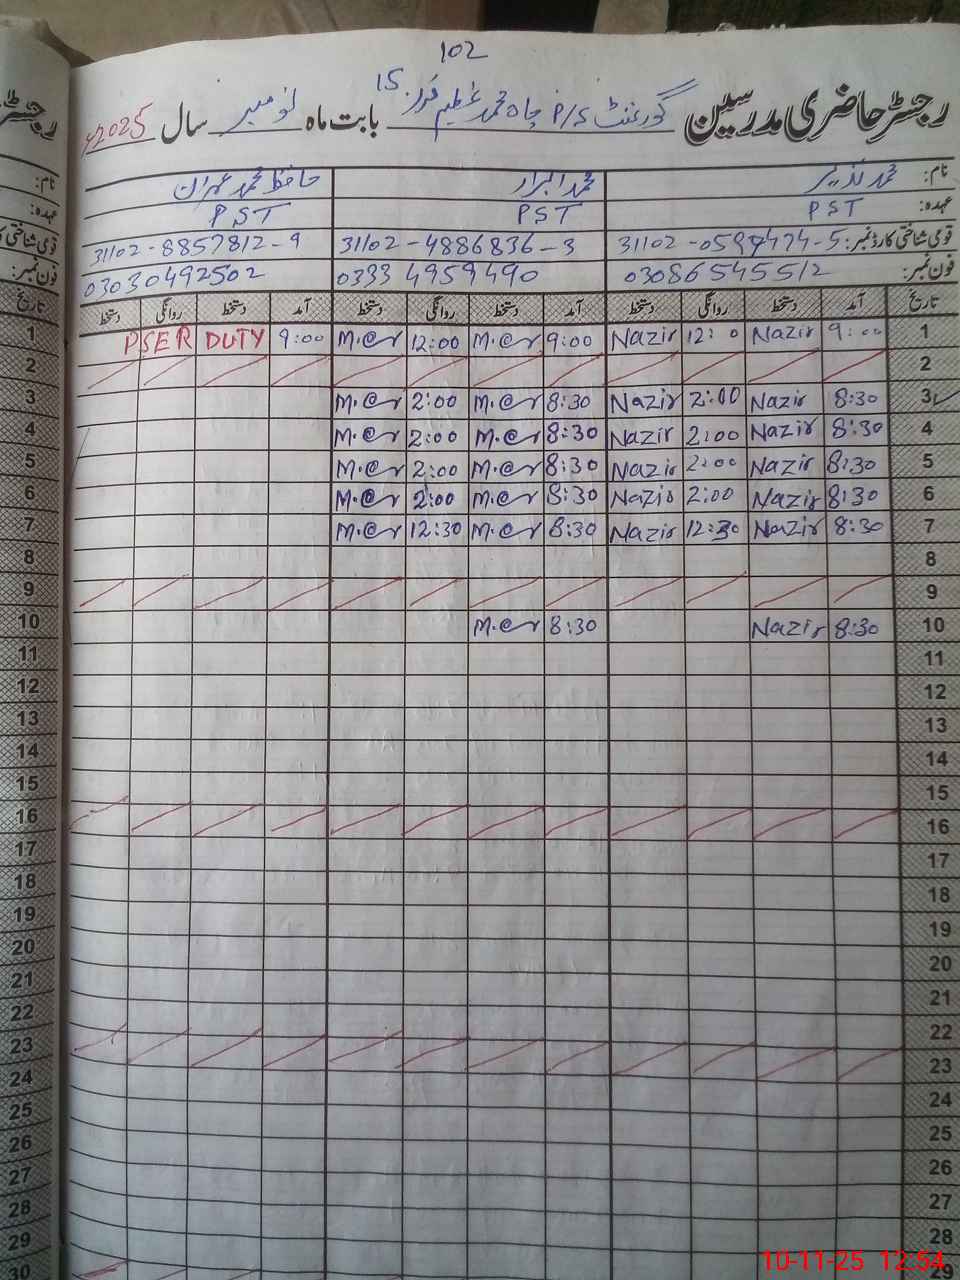 102
رجسٹر حاضری مدرسین گورنمنٹ P/S چاہ محمد عظیم فراز 15 بابت ماہ نومبر سال 2025ء
نام: محمد نذیر محمد ابرار حافظ محمد عمران
عہدہ: PST PST PST
قومی شناختی کارڈ نمبر: 31102-0597474-5 31102-4886836-3 31102-8857812-9
فون نمبر: 03086545512 0333 4959490 03030492502
تاریخ آمد دستخط روانگی دستخط آمد دستخط روانگی دستخط آمد دستخط روانگی دستخط
1 9:00 Nazir 12:0 Nazir 9:00 M.@r 12:00 M.@r 9:00 PSER DUTY
2
3 8:30 Nazir 2:00 Nazir 8:30 M.@r 2:00 M.@r
4 8:30 Nazir 2:00 Nazir 8:30 M.@r 2:00 M.@r
5 8:30 Nazir 2:00 Nazir 8:30 M.@r 2:00 M.@r
6 8:30 Nazir 2:00 Nazir 8:30 M.@r 2:00 M.@r
7 8:30 Nazir 12:30 Nazir 8:30 M.@r 12:30 M.@r
8
9
10 8:30 Nazir 8:30 M.@r
11
12
13
14
15
16
17
18
19
20
21
22
23
24
25
26
27
28
29
10-11-25 12:54
رجسٹر
نام:
عہدہ:
قومی شناختی کارڈ
فون نمبر:
تاریخ
1
2
3
4
5
6
7
8
9
10
11
12
13
14
15
16
17
18
19
20
21
22
23
24
25
26
27
28
29
30